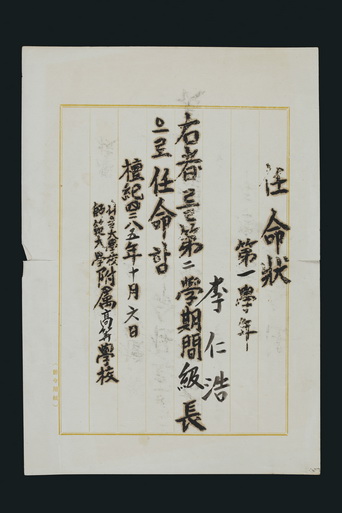 任命狀
第一學年
李仁浩
右者르를第二學期間級長
으로任命함
檀紀四二八五年十月六日
서울大學校
師範大學附属高等學校